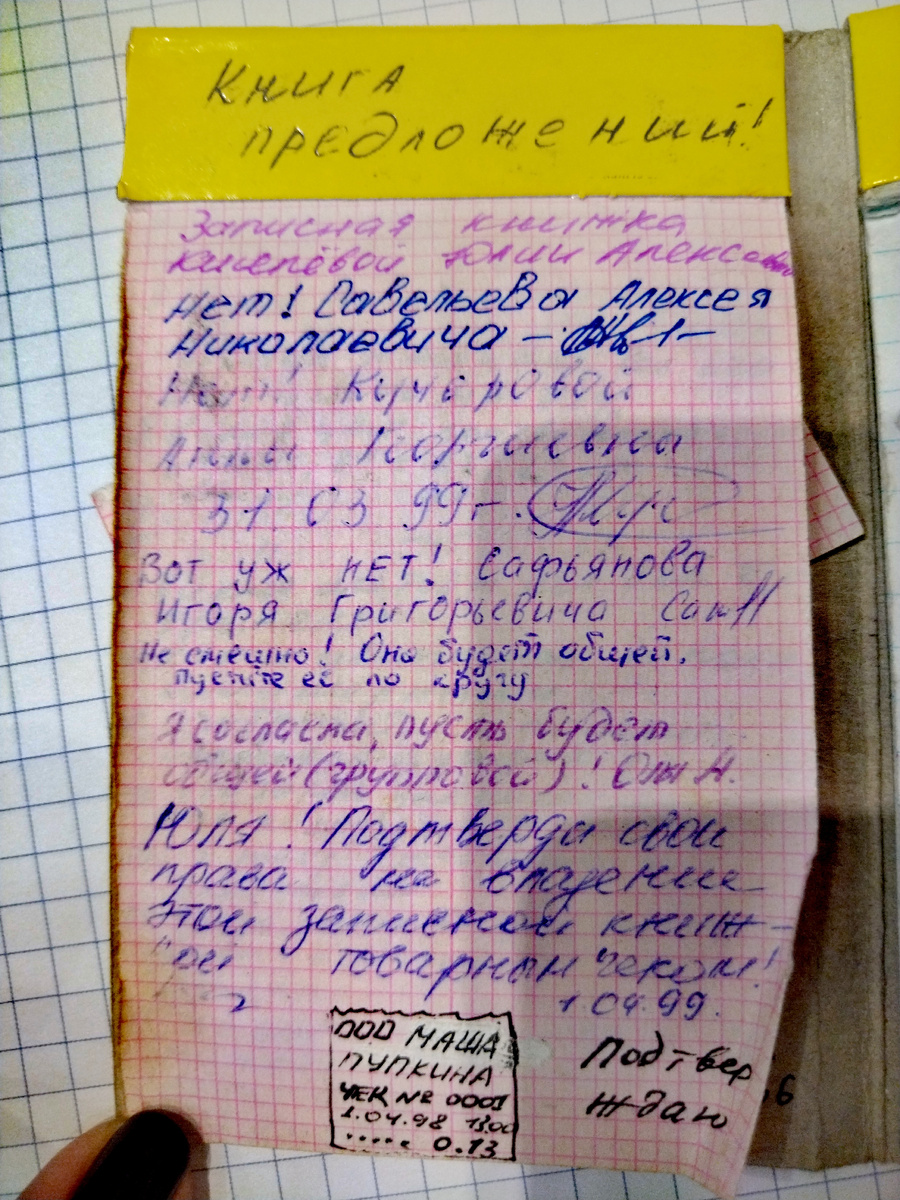 Книга
предложений!
Записная книжка
Киселёвой Юлии Алексе
Нет! Савельева Алексея
Николаевича —
Нет! Кучеровой
Анны Георгиевны
31. 03 99г.
Вот уж НЕТ! Сафьянова
Игоря Григорьевича
Не смешно! Она будет общей,
пустите её по кругу
Я согласна, пусть будет
общей (групповой)! От А.
Юля! Подтверди свои
права на владение
этой записной книж-
кой товарным чеком!
1.04.99.
ООО МАША
ПУПКИНА
ЧЕК № 0001
1.04.98 13.00
..... 0.13
Подтвер
ждаю
6